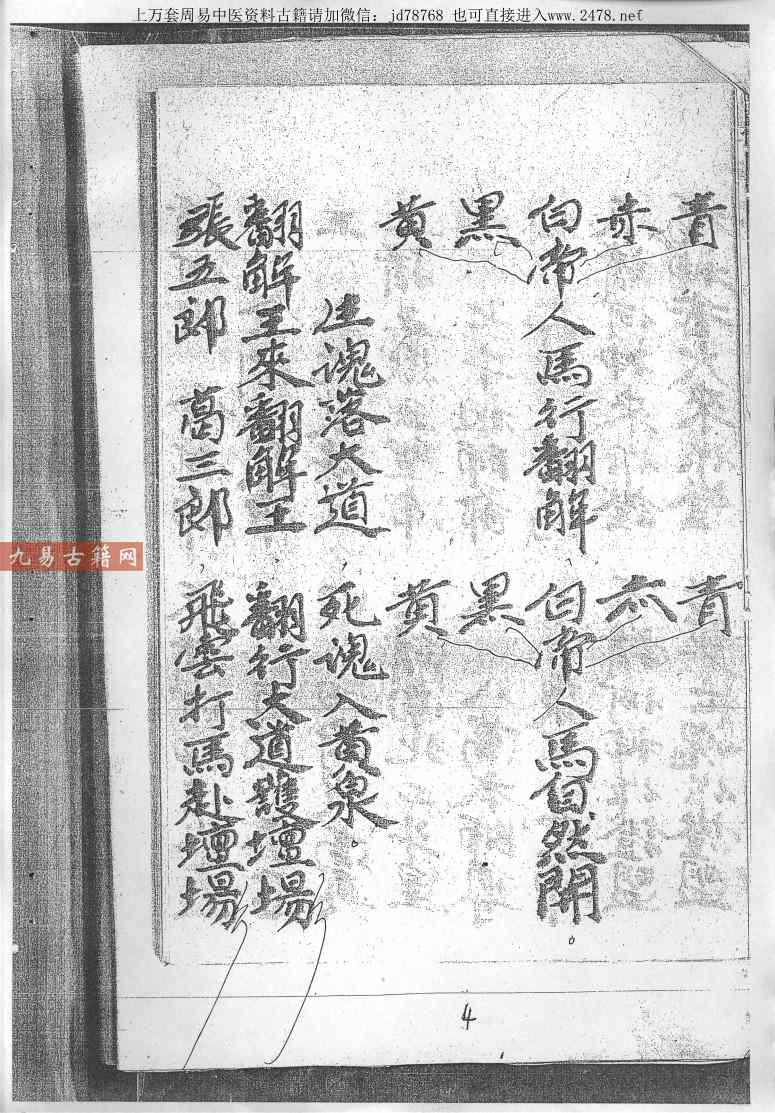 上万套周易中医资料古籍请加微信：jd78768 也可直接进入www.2478.net
青 青
赤 赤
白帝人馬行翻解 白帝人馬自然開。
黑 黑
黄 黄
生魂落大道 死魂入黄泉。
翻解王來翻解王 翻行大道護壇場
張五郎 葛三郎 飛雲打馬赴壇場
九易古籍网
4